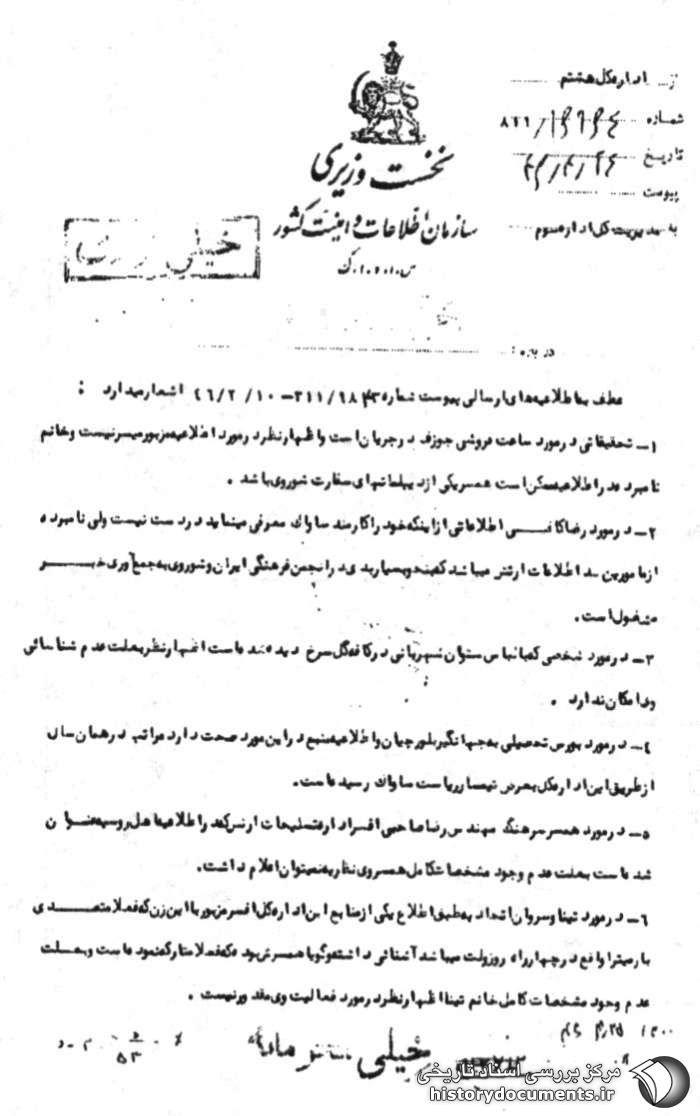 از اداره کل هشتم
شماره
تاریخ
پیوست
به مدیریت کل اداره سوم
نخست وزیری
سازمان اطلاعات و امنیت کشور
س.ا.و.ا.ک
خیلی
درباره :
عطف به اطلاعیه‌های ارسالی پیوست شماره ۳۱۱/۹۸۴۳ – ۴۶/۲/۱۰ اشعار میدارد :
۱– تحقیقاتی در مورد ساعت فروشی جوزف در جریان است و اظهار نظر در مورد اطلاعیه مزبور میسر نیست و خانم
نامبرده در اطلاعیه ممکن است همسر یکی از دیپلماتهای سفارت شوروی باشد .
۲– در مورد رضا اطلاعاتی از اینکه خود را کارمند ساواک معرفی مینماید در دست نیست ولی نامبرده
از مامورین ضد اطلاعات ارتش میباشد که بنحو بسیار بدی در انجمن فرهنگی ایران و شوروی به جمع‌آوری خبر
مشغول است.
۳– در مورد شخصی که با لباس ستوان شهربانی در کافه گل سرخ دیده شده است اظهار نظر بعلت عدم شناسائی
وی امکان ندارد .
۴– در مورد بورس تحصیلی به جهانگیر بلورچیان و اطلاعیه منبع در این مورد صحت دارد مراتب در همان سال
از طریق این اداره کل بعرض تیمسار ریاست ساواک رسیده است.
۵– در مورد همسر سرهنگ مهندس رضا صاحبی افسر اداره تسلیحات ارتش که در اطلاعیه اهل روسیه عنوان
شده است بعلت عدم وجود مشخصات کامل همسر وی نظریه نمیتوان اعلام داشت.
۶– در مورد تینا و سروان به طبق اطلاع یکی از منابع این اداره کل افسر مزبور با این زن که فعلا متصدی
بار میترا واقع در چهارراه روزولت میباشد آشنائی داشته و گویا همسرش بوده که فعلا متارکه نموده است و بعلت
عدم وجود مشخصات کامل خانم تینا اظهار نظر در مورد فعالیت وی مقدور نیست .
خیلی
مرکز بررسی اسناد تاریخی
historydocuments.ir